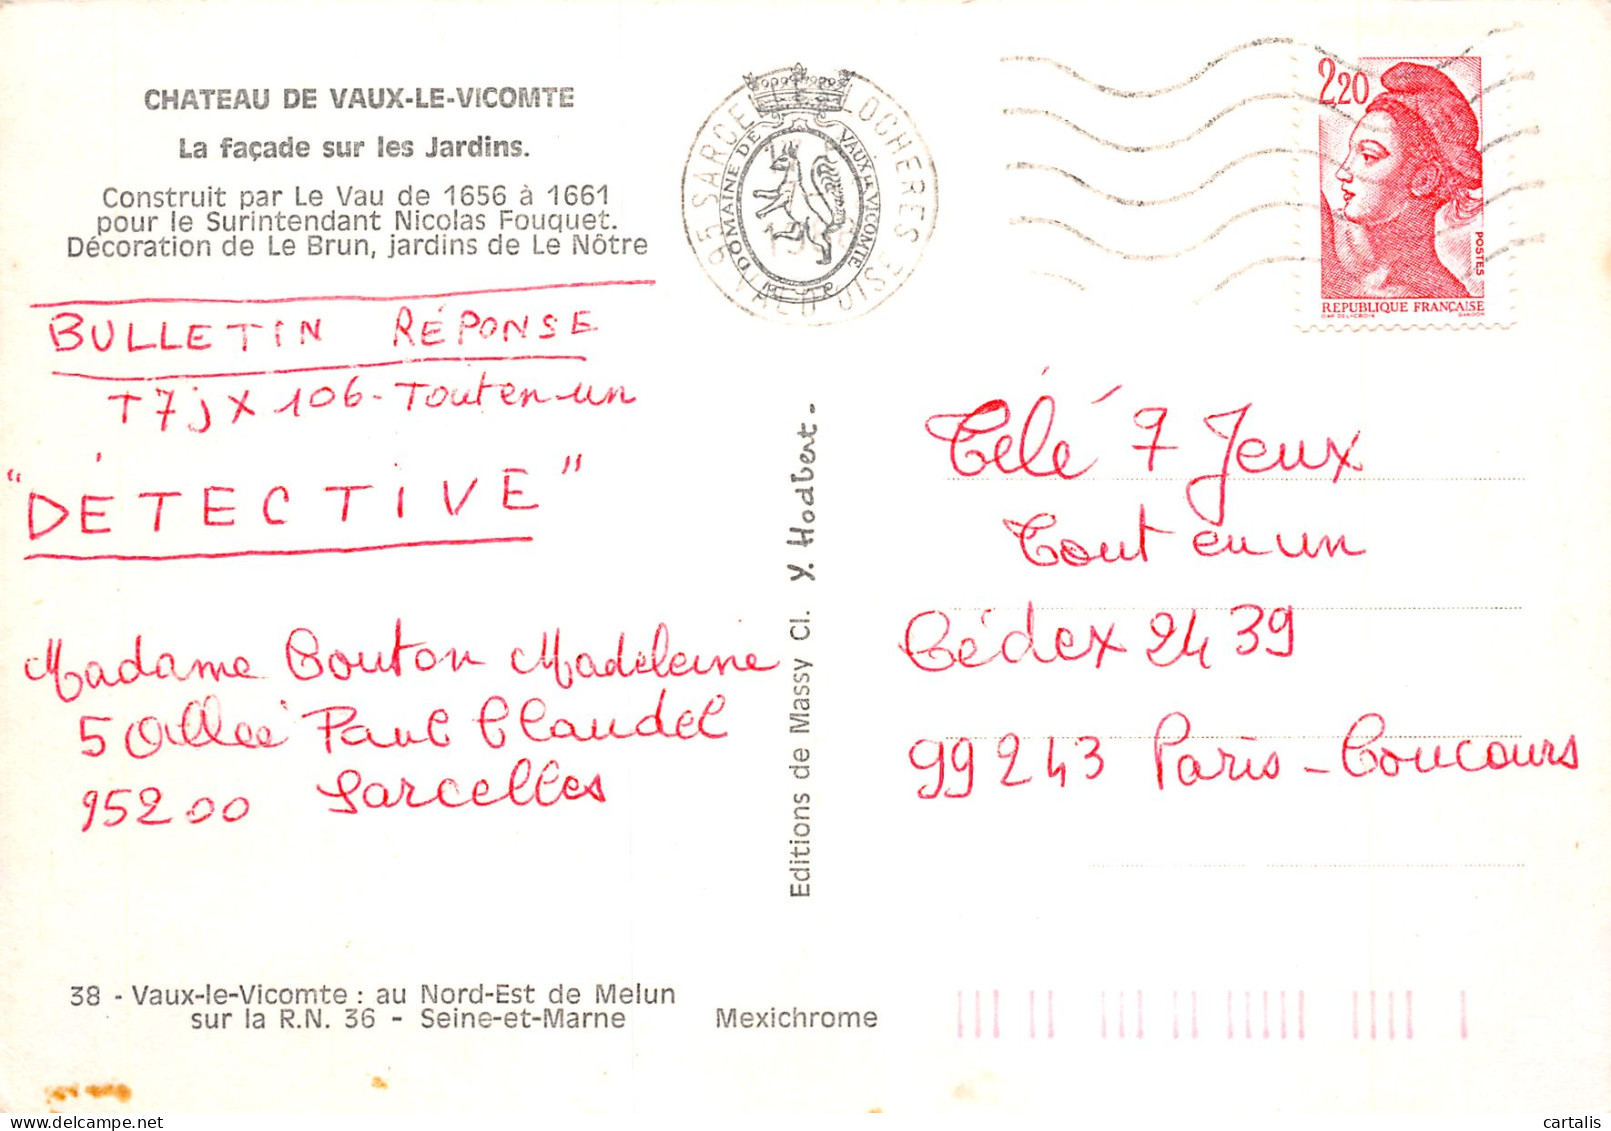 CHATEAU DE VAUX-LE-VICOMTE
La façade sur les Jardins.
Construit par Le Vau de 1656 à 1661
pour le Surintendant Nicolas Fouquet.
Décoration de Le Brun, jardins de Le Nôtre
BULLETIN RÉPONSE
T7jX 106 - Tout en un
"DÉTECTIVE"
Madame Bouton Madeleine
5 Allée Paul Claudel
95200 Sarcelles
38 - Vaux-le-Vicomte : au Nord-Est de Melun
sur la R.N. 36 - Seine-et-Marne
Mexichrome
Editions de Massy Cl. Y. Hodbert -
DOMAINE DE VAUX LE VICOMTE
95 VAL D'OISE
2,20
POSTES
REPUBLIQUE FRANÇAISE
GANDON
Télé 7 Jeux
Tout en un
Cédex 2439
99243 Paris - Concours
cartalis